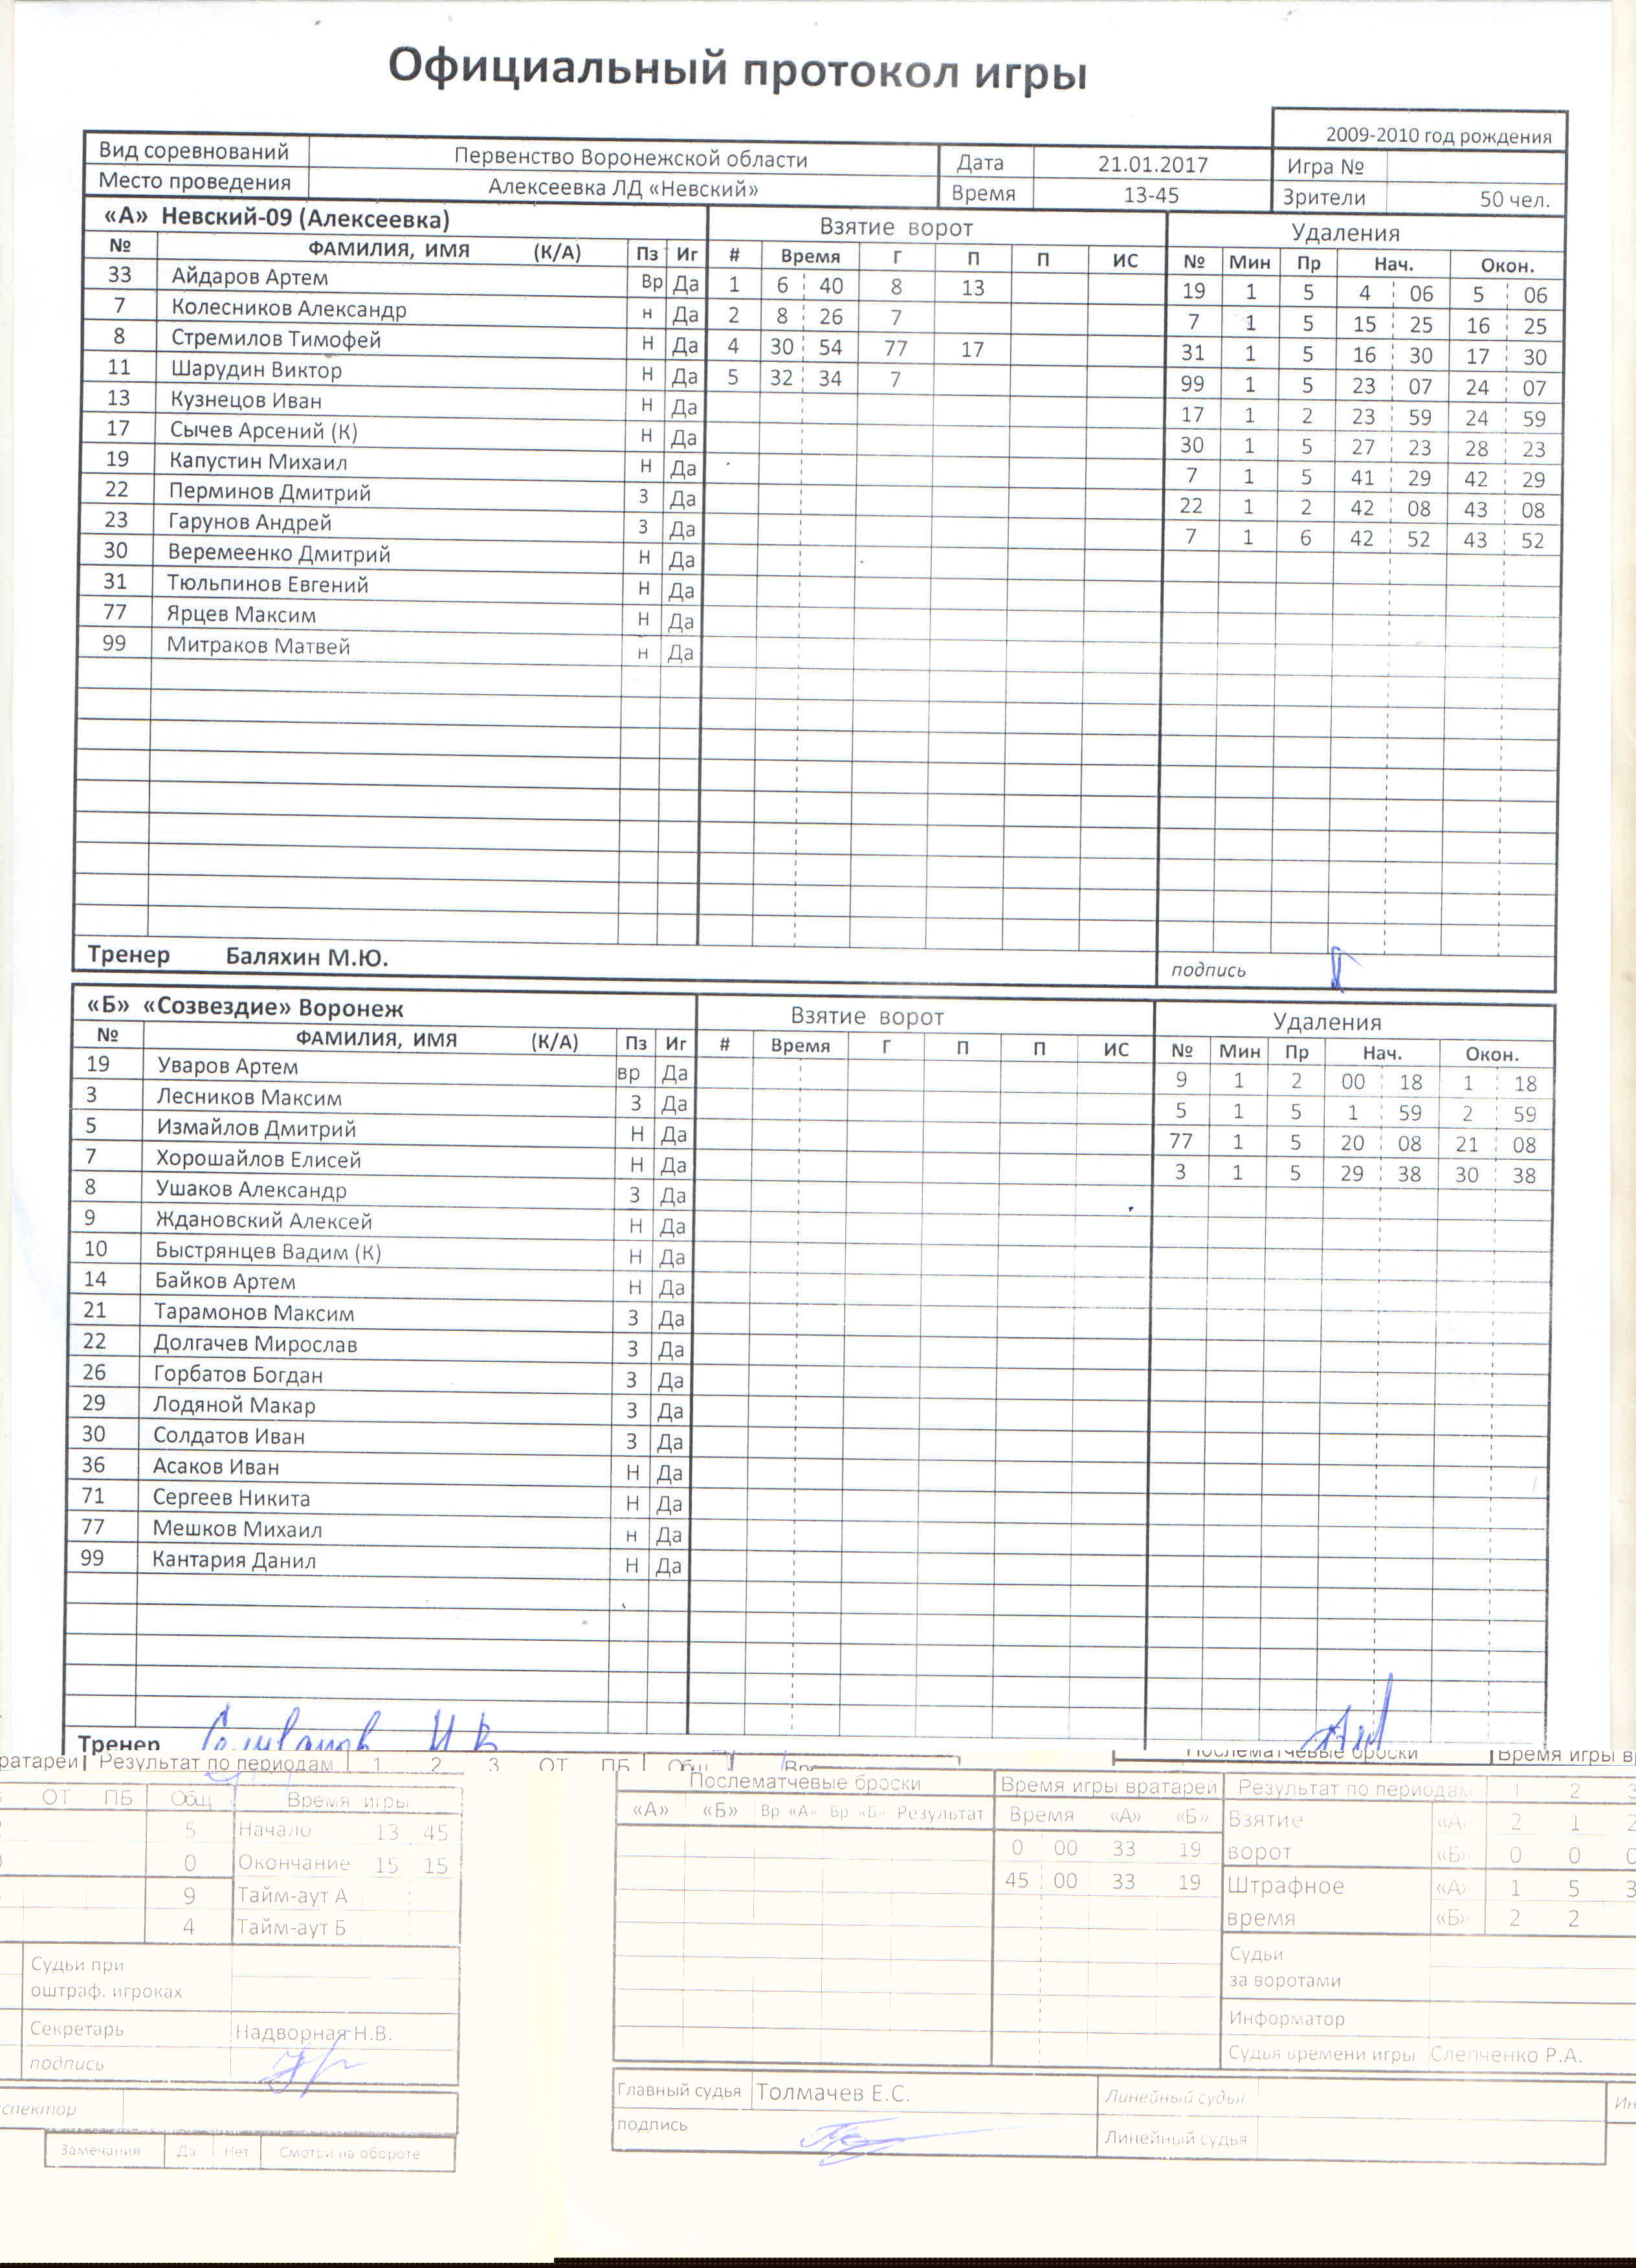 Официальный протокол игры
2009-2010 год рождения
Вид соревнований Первенство Воронежской области Дата 21.01.2017 Игра №
Место проведения Алексеевка ЛД «Невский» Время 13-45 Зрители 50 чел.
«А» Невский-09 (Алексеевка) Взятие ворот Удаления
№ ФАМИЛИЯ, ИМЯ (К/А) Пз Иг # Время Г П П ИС № Мин Пр Нач. Окон.
33 Айдаров Артем Вр Да 1 6 40 8 13 19 1 5 4 06 5 06
7 Колесников Александр н Да 2 8 26 7 7 1 5 15 25 16 25
8 Стремилов Тимофей Н Да 4 30 54 77 17 31 1 5 16 30 17 30
11 Шарудин Виктор Н Да 5 32 34 7 99 1 5 23 07 24 07
13 Кузнецов Иван Н Да 17 1 2 23 59 24 59
17 Сычев Арсений (К) Н Да 30 1 5 27 23 28 23
19 Капустин Михаил Н Да 7 1 5 41 29 42 29
22 Перминов Дмитрий З Да 22 1 2 42 08 43 08
23 Гарунов Андрей З Да 7 1 6 42 52 43 52
30 Веремеенко Дмитрий Н Да
31 Тюльпинов Евгений Н Да
77 Ярцев Максим Н Да
99 Митраков Матвей н Да
Тренер Баляхин М.Ю. подпись
«Б» «Созвездие» Воронеж Взятие ворот Удаления
№ ФАМИЛИЯ, ИМЯ (К/А) Пз Иг # Время Г П П ИС № Мин Пр Нач. Окон.
19 Уваров Артем вр Да 9 1 2 00 18 1 18
3 Лесников Максим З Да 5 1 5 1 59 2 59
5 Измайлов Дмитрий Н Да 77 1 5 20 08 21 08
7 Хорошайлов Елисей Н Да 3 1 5 29 38 30 38
8 Ушаков Александр З Да
9 Ждановский Алексей Н Да
10 Быстрянцев Вадим (К) Н Да
14 Байков Артем Н Да
21 Тарамонов Максим З Да
22 Долгачев Мирослав З Да
26 Горбатов Богдан З Да
29 Лодяной Макар З Да
30 Солдатов Иван З Да
36 Асаков Иван Н Да
71 Сергеев Никита Н Да
77 Мешков Михаил н Да
99 Кантария Данил Н Да
Тренер
ратарей Результат по периодам 1 2 3 ОТ ПБ Общ Послематчевые броски Время игры в
ОТ ПБ Общ Время игры
5 Начало 13 45
0 Окончание 15 15
9 Тайм-аут А
4 Тайм-аут Б
Судьи при
оштраф. игроках
Секретарь Надворная Н.В.
подпись
спектор
Замечания Да Нет Смотри на обороте
Послематчевые броски Время игры вратарей Результат по периодам 1 2 3
«А» «Б» Вр «А» Вр «Б» Результат Время «А» «Б» Взятие «А» 2 1 2
0 00 33 19 ворот «Б» 0 0 0
45 00 33 19 Штрафное «А» 1 5 3
время «Б» 2 2
Судьи
за воротами
Информатор
Судья времени игры Слепченко Р.А.
Главный судья Толмачев Е.С. Линейный судья Ин
подпись Линейный судья